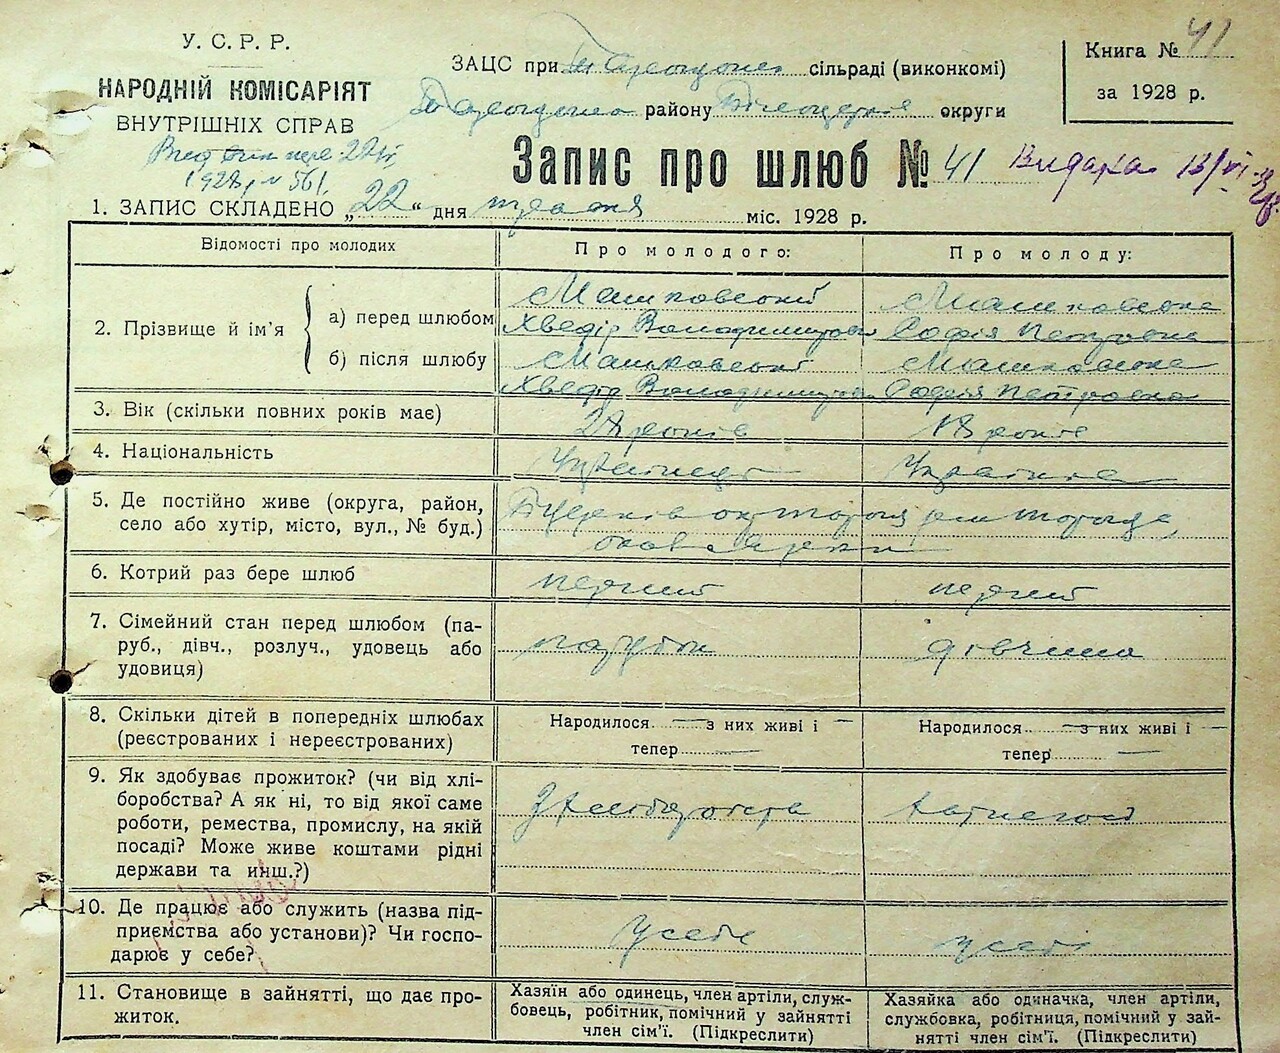 У. С. Р. Р.
НАРОДНІЙ КОМІСАРІЯТ
ВНУТРІШНІХ СПРАВ
1928 р № 561
ЗАЦС при сільраді (виконкомі)
району округи
Книга № 41
за 1928 р.
Запис про шлюб № 41 Видана 13/VI
1. ЗАПИС СКЛАДЕНО „22“ дня травня міс. 1928 р.
Відомості про молодих
Про молодого:
Про молоду:
2. Прізвище й ім'я
а) перед шлюбом
Машковський
Хведір Володимирович
Машковська
Софія Петровна
б) після шлюбу
Машковський
Хведір Володимирович
Машковська
Софія Петровна
3. Вік (скільки повних років має)
28 років
18 років
4. Національність
Українець
Українка
5. Де постійно живе (округа, район,
село або хутір, місто, вул., № буд.)
6. Котрий раз бере шлюб
первий
первий
7. Сімейний стан перед шлюбом (па-
руб., дівч., розлуч., удовець або
удовиця)
парубок
дівчина
8. Скільки дітей в попередніх шлюбах
(реєстрованих і нереєстрованих)
Народилося — з них живі і —
тепер —
Народилося — з них живі і —
тепер —
9. Як здобуває прожиток? (чи від хлі-
боробства? А як ні, то від якої саме
роботи, ремества, промислу, на якій
посаді? Може живе коштами рідні
держави та инш.?)
з хліборобства
10. Де працює або служить (назва під-
приємства або установи)? Чи госпо-
дарює у себе?
у себе
у себе
11. Становище в зайнятті, що дає про-
житок.
Хазяїн або одинець, член артіли, служ-
бовець, робітник, помічний у зайнятті
член сім'ї. (Підкреслити)
Хазяйка або одиначка, член артіли,
службовка, робітниця, помічний у зай-
нятті член сім'ї. (Підкреслити)